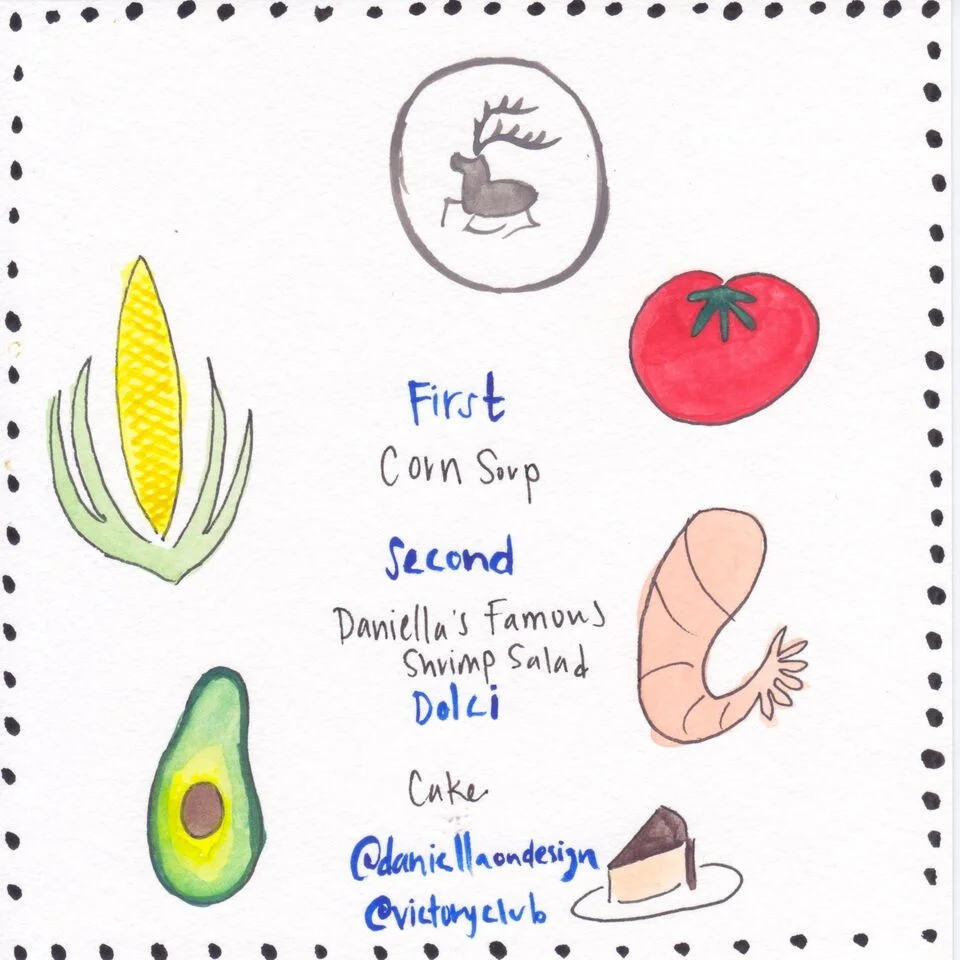 First
Corn Soup
Second
Daniella's Famous
Shrimp Salad
Dolci
Cake
@daniellaondesign
@victoryclub